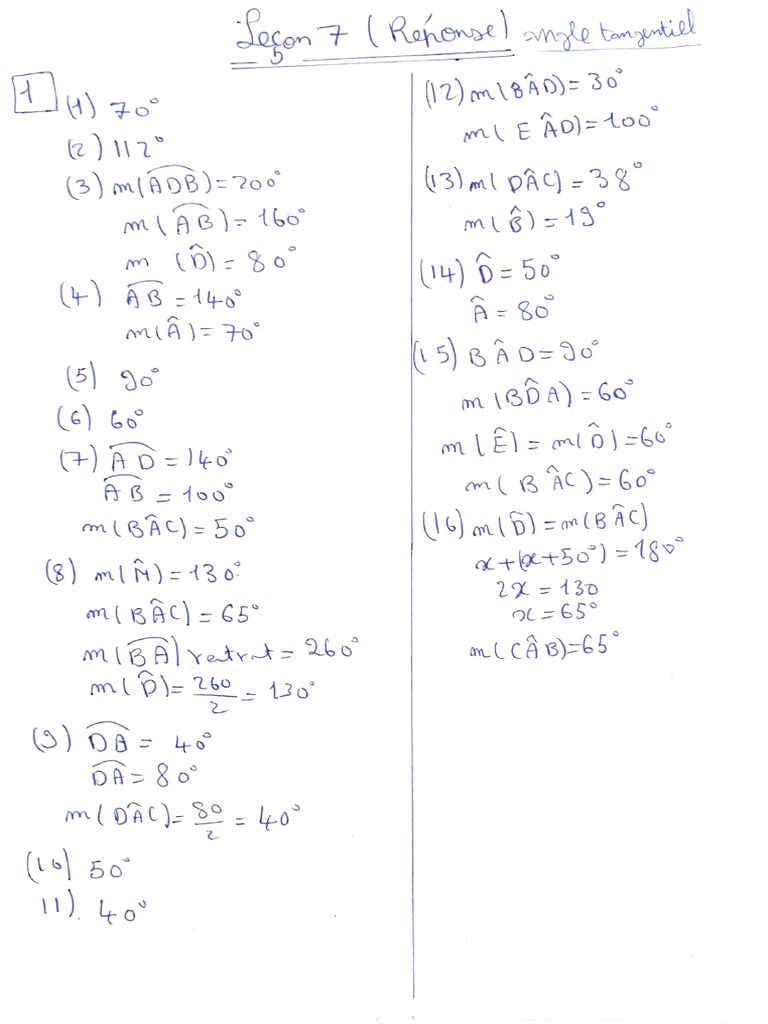 Leçon 7 (Réponse) angle tangentiel
5
1 (1) 70°
(2) 112°
(3) m(ADB) = 200°
m(AB) = 160°
m (D̂) = 80°
(4) AB = 140°
m(Â) = 70°
(5) 90°
(6) 60°
(7) AD = 140°
AB = 100°
m(BÂC) = 50°
(8) m(M̂) = 130°
m(BÂC) = 65°
m(BA) rentrant = 260°
m(D̂) = 260/2 = 130°
(9) DA = 40°
DA = 80°
m(DÂC) = 80/2 = 40°
(10) 50°
11). 40°
(12) m(BÂD) = 30°
m(EÂD) = 100°
(13) m(DÂC) = 38°
m(B̂) = 19°
(14) D̂ = 50°
Â = 80°
(15) BÂD = 90°
m(BD̂A) = 60°
m(Ê) = m(D̂) = 60°
m(BÂC) = 60°
(16) m(D̂) = m(BÂC)
x + (x + 50°) = 180°
2x = 130
x = 65°
m(CÂB) = 65°